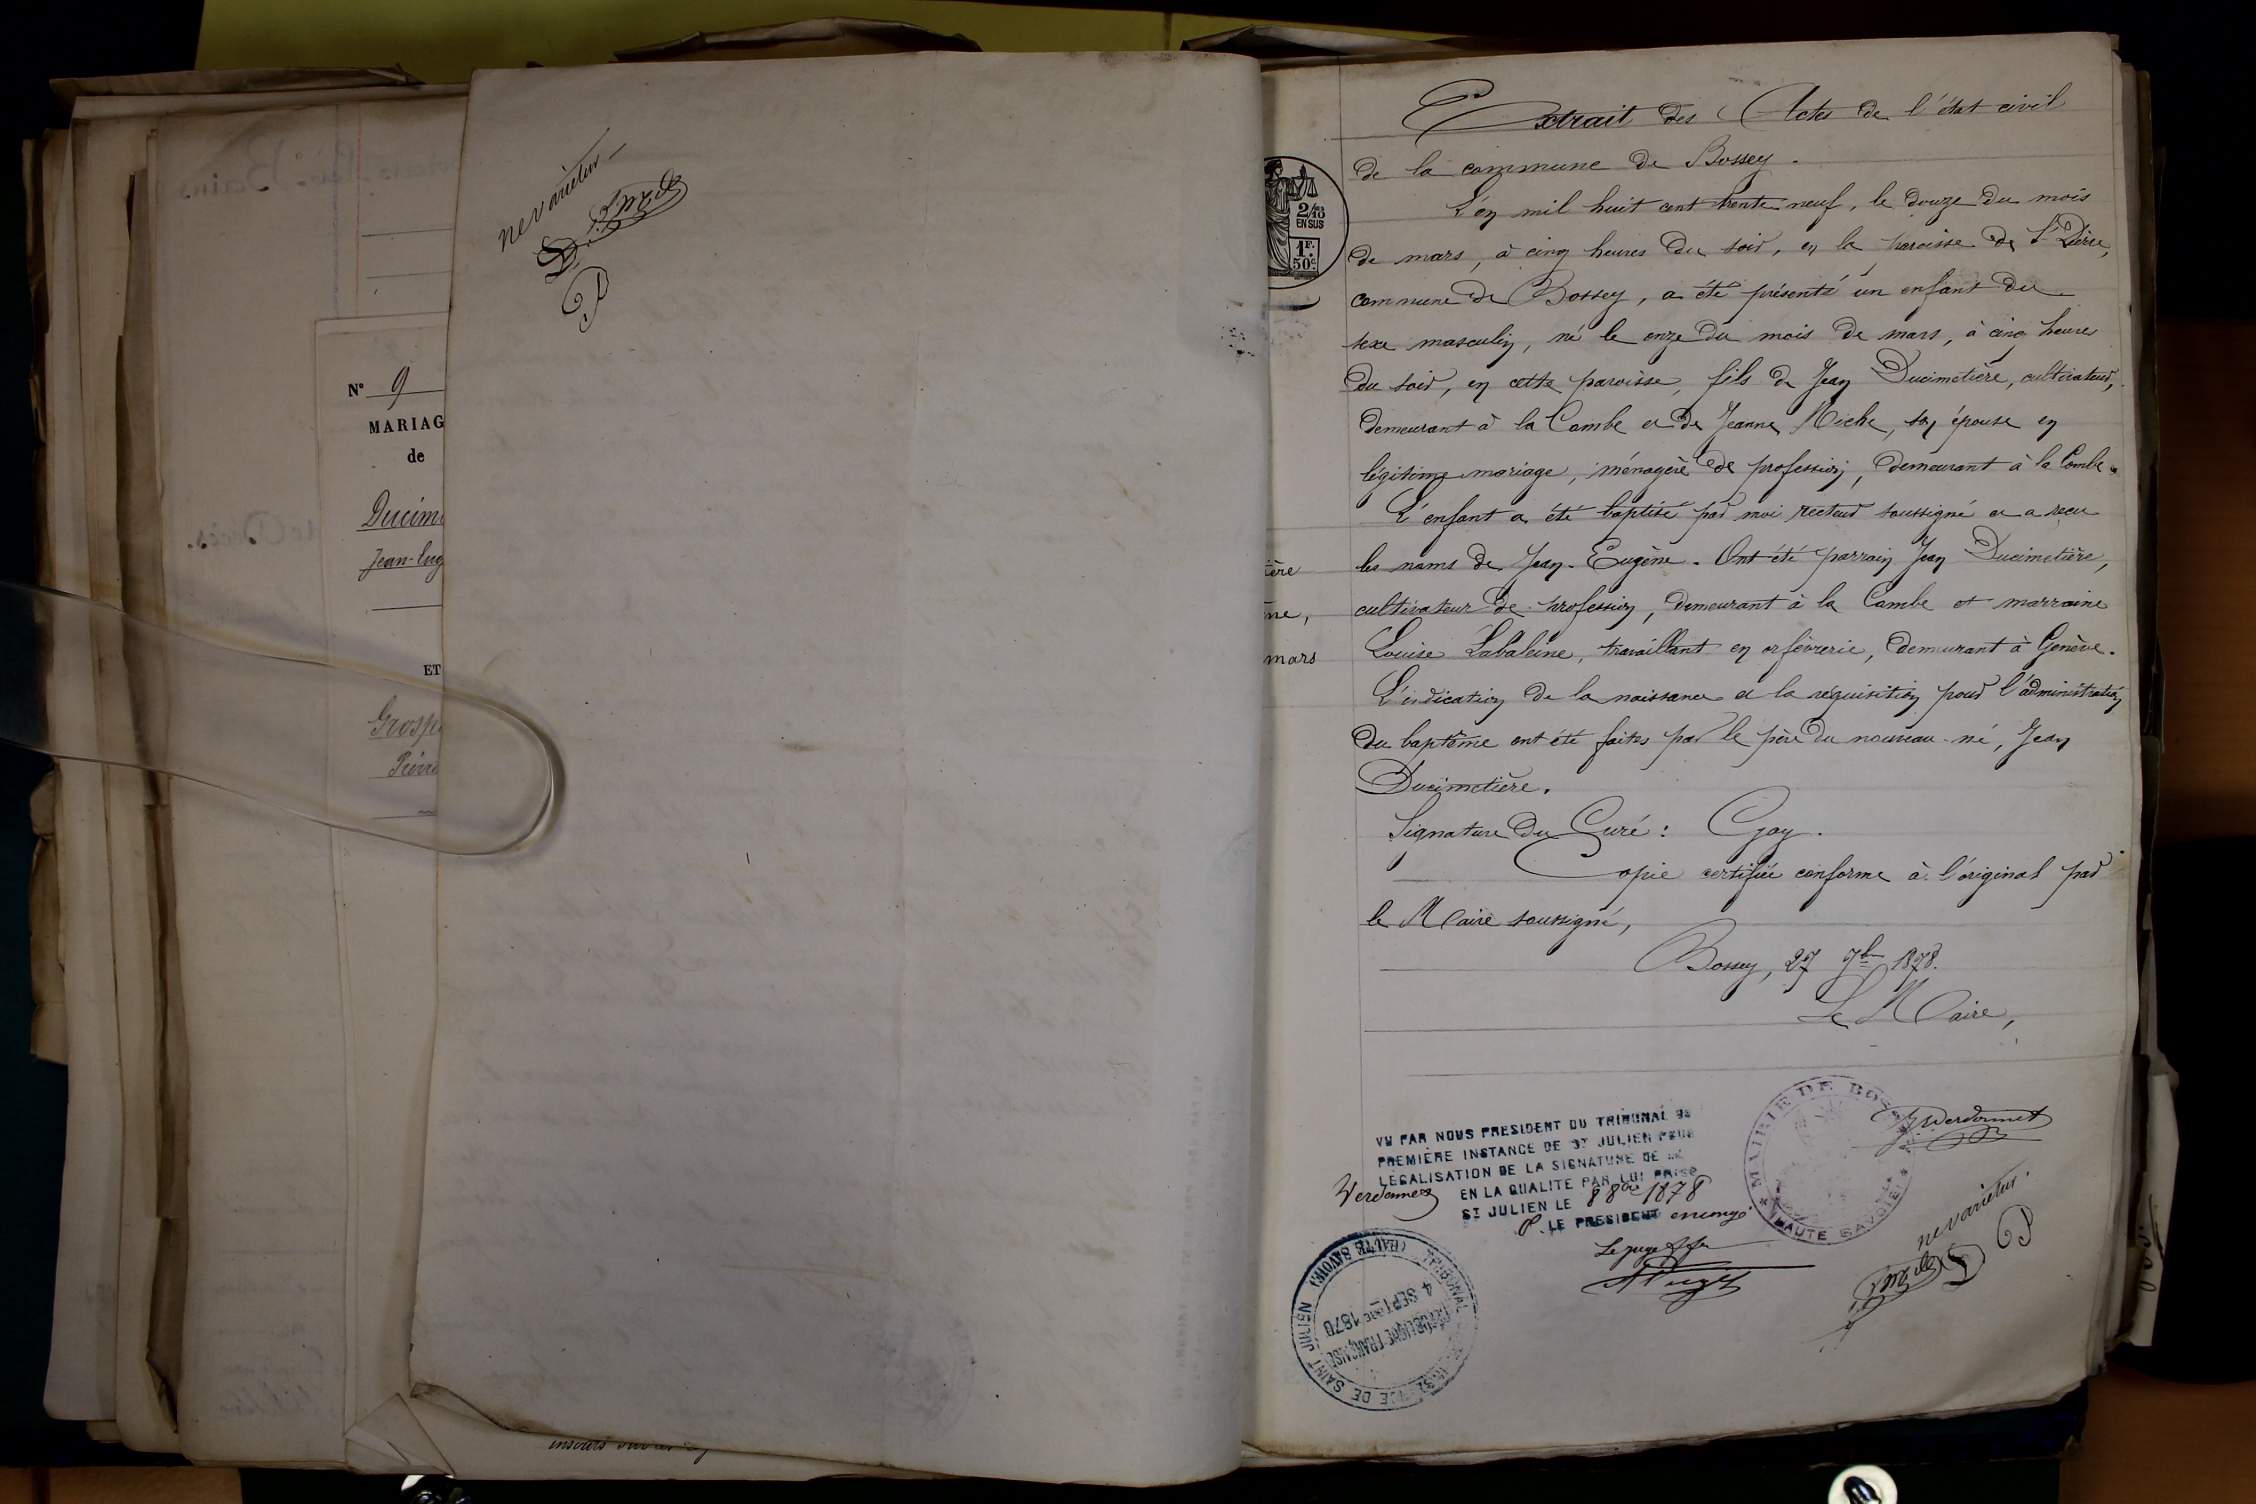 ne varietur
P
Nº 9
MARIAG
de
Ducim
Jean-Eug
ET
Grosp
2/10
EN SUS
1F.
50c
ère
ne,
mars
Extrait des Actes de l'état civil
de la commune de Bossey.
L'en mil huit cent trente neuf, le douze du mois
de mars, à cinq heures du soir, en la paroisse de
commune de Bossey, a été présenté un enfant du
sexe masculin, né le onze du mois de mars, à cinq heures
du soir, en cette paroisse, fils de Jean Ducimetière, cultivateur,
demeurant à la Combe et de Jeanne, son épouse en
légitime mariage, ménagère de profession, demeurant à la Combe.
L'enfant a été baptisé par moi recteur soussigné et a reçu
les noms de Jean-Eugène. Ont été parrain Jean Ducimetière,
cultivateur de profession, demeurant à la Combe et marraine
Louise Labaleine, travaillant en orfèvrerie, demeurant à Genève.
L'indication de la naissance et la réquisition pour l'administration
du baptême ont été faites par le père du nouveau-né, Jean
Ducimetière.
Signature du Curé : Gay.
Copie certifiée conforme à l'original par
le Maire soussigné,
Bossey, 27 7bre 1878.
Le Maire,
J Verdonnet
MAIRIE DE BOSSEY
(HAUTE SAVOIE)
VU PAR NOUS PRESIDENT DU TRIBUNAL DE
PREMIÈRE INSTANCE DE ST JULIEN POUR
LÉGALISATION DE LA SIGNATURE DE M
Verdonnet EN LA QUALITE PAR LUI PRISE
ST JULIEN LE 8 8bre 1878
P. LE PRESIDENT en congé
Le juge
ne varietur
P
TRIBUNAL DE SAINT JULIEN (HAUTE SAVOIE)
RÉPUBLIQUE FRANÇAISE
4 SEPTbre 1870